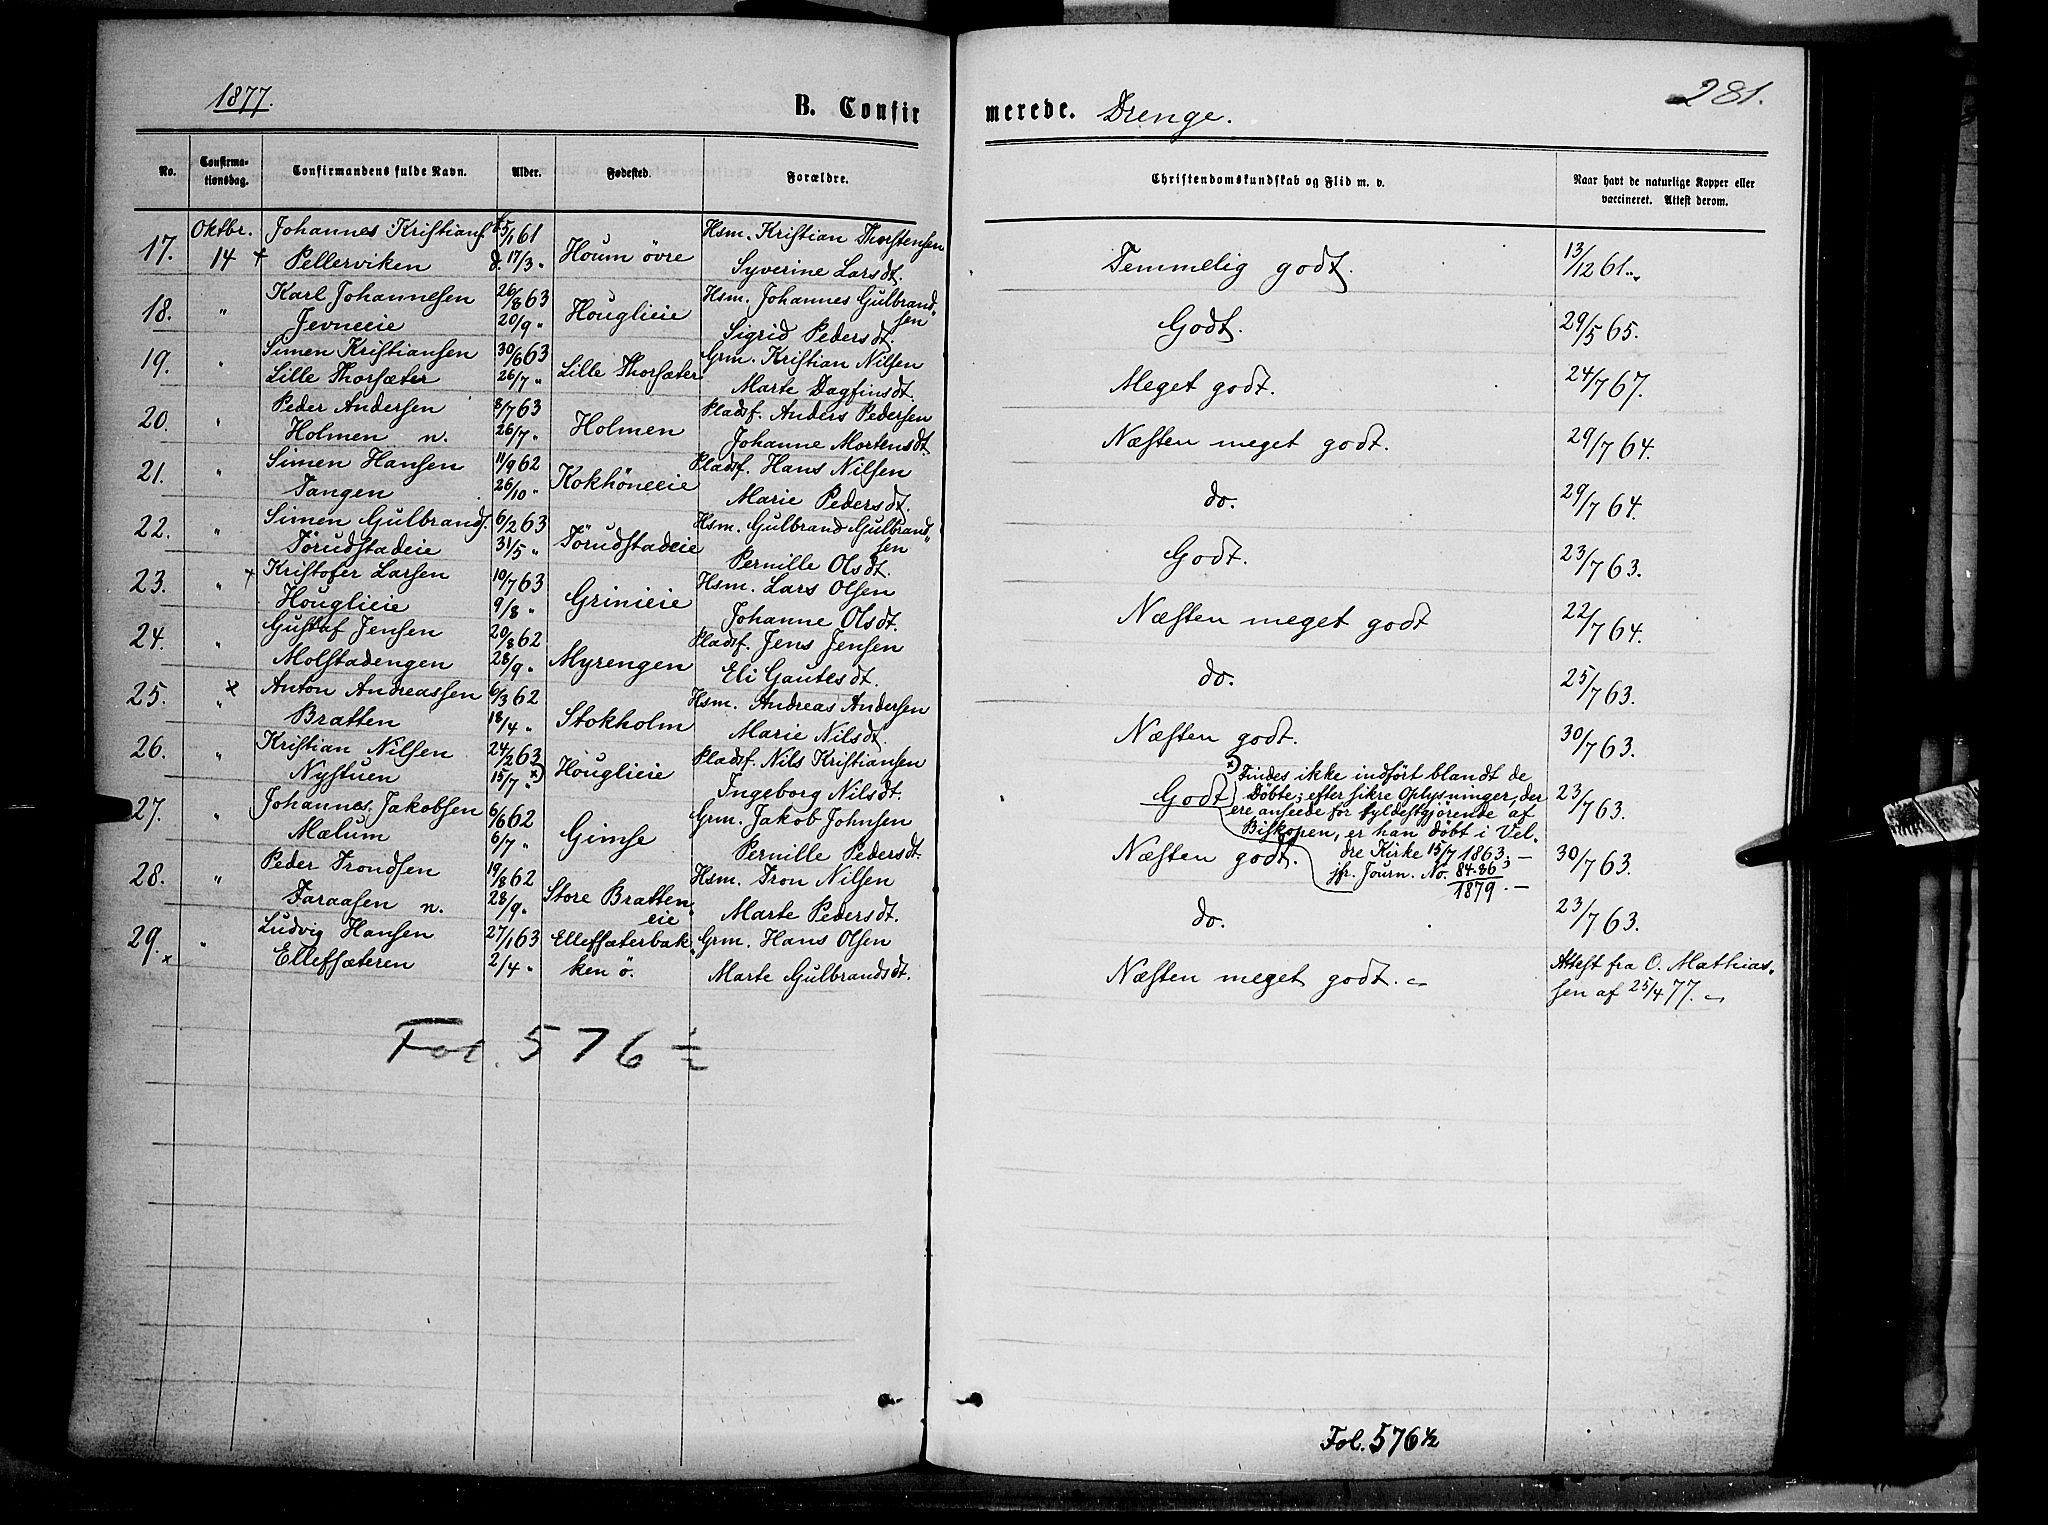 1877.
B. Confirmerede. Drenge.
281.
No.
Confirmationsdag.
Confirmandens fulde Navn.
Alder.
Fødested.
Forældre.
Christendomskundskab og Flid m. v.
Naar havt de naturlige Kopper eller
vaccineret. Attest derom.
17. Oktbr. Johannes Kristians. f. 5/1 61 Houm øvre Hsm. Kristian Thorstensen Temmelig godt. 13/12 61.
14 + Pellerviken d. 17/3 " Syverine Larsdt.
18. " Karl Johannesen 26/8 63 Houglieie Hsm. Johannes Gulbrand- Godt. 29/5 65.
Jevneeie 20/9 " sen
Sigrid Pedersdt.
19. " Simen Kristiansen 30/6 63 Lille Thorsæter Grm. Kristian Nilsen Meget godt. 24/7 67.
Lille Thorsæter 26/7 " Marte Dagfinsdt.
20. " Peder Andersen 8/7 63 Holmen Pladsf. Anders Pedersen Næsten meget godt. 29/7 64.
Holmen n. 26/7 " Johanne Mortensdt
21. " Simen Hansen 11/9 62 Kokhöneeie Pladsf. Hans Nilsen do. 29/7 64.
Tangen 26/10 " Marie Pedersdt.
22. " Simen Gulbrands. 6/2 63 Törudstadeie Hsm. Gulbrand Gulbrand- Godt. 23/7 63.
Törudstadeie 31/5 " sen
Pernille Olsdt.
23. " + Kristofer Larsen 10/7 63 Grinieie Hsm. Lars Olsen Næsten meget godt 22/7 64.
Houglieie 9/8 " Johanne Olsdt.
24. " Gustaf Jensen 20/8 62 Myrengen Pladsf. Jens Jensen do. 25/7 63.
Molstadengen 28/9 " Eli Gautesdt.
25. " x Anton Andreassen 6/3 62 Stokholm Hsm. Andreas Andersen Næsten godt. 30/7 63.
Bratten 18/4 " Marie Nilsdt.
26. " Kristian Nilsen 24/2 63 Houglieie Pladsf. Nils Kristiansen Godt 23/7 63.
Nystuen 15/7 " x) Ingeborg Nilsdt.
x) Findes ikke indført blandt de
Døbte; efter sikre Oplysninger, der
ere ansede for fyldestgjørende af
Biskopen, er han døbt i Vel-
dre Kirke 15/7 1863. —
jfr. Journ. No. 84.86/1879. —
27. " Johannes Jakobsen 6/6 62 Gimse Grm. Jakob Johnsen Næsten godt. 30/7 63.
Mælum 6/7 " Pernille Pedersdt.
28. " Peder Trondsen 19/8 62 Store Bratten- Hsm. Tron Nilsen do. 23/7 63.
Taraasen n. 28/9 " eie Marte Pedersdt.
29. x " Ludvig Hansen 27/1 63 Ellefsæterbak- Grm. Hans Olsen Næsten meget godt. Attest fra O. Mathias-
Ellefsæteren 2/4 " ken ö. Marte Gulbrandsdt. sen af 25/4 77.
Fol. 576 ½
Fol. 576 ½